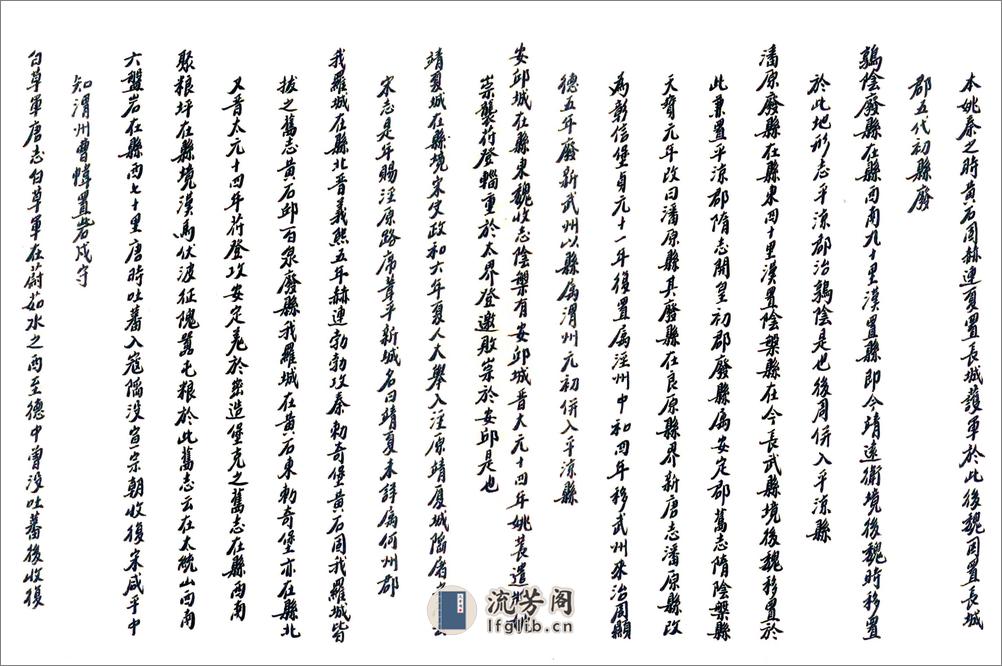 本姚秦之時黃石固赫連夏置長城護軍於此後魏因置長城
郡五代初縣廢
鶉陰廢縣在縣西南九十里漢置縣即今靖遠衛境後魏時移置
於此地形志平涼郡治鶉陰是也後周併入平涼縣
潘原廢縣在縣東四十里漢置陰槃縣在今長武縣境後魏移置於
此兼置平涼郡隋志開皇初郡廢縣屬安定郡舊志隋陰槃縣
天寶元年改曰潘原縣其廢縣在良原縣界新唐志潘原縣改
為彰信堡貞元十一年復置屬涇州中和四年移武州來治周顯
德五年廢新武州以縣屬渭州元初併入平涼縣
安邱城在縣東魏收志陰槃有安邱城晉太元十四年姚萇遣
崇襲苻登輜重於大界登邀敗崇於安邱是也
靖夏城在縣境宋史政和六年夏人大舉入涇原靖夏城陷屠
宋志是年賜涇原路席葦平新城名曰靖夏未詳屬何州郡
我羅城在縣北晉義熙五年赫連勃勃攻秦勅奇堡黃石固我羅城皆
拔之舊志黃石邱百泉廢縣我羅城在黃石東勅奇堡亦在縣北
又晉太元十四年苻登攻安定羌於密造堡克之舊志在縣西南
聚粮坪在縣境漢馬伏波征隗囂屯粮於此舊志云在太統山西南
六盤岩在縣西七十里唐時吐蕃入寇陷沒宣宗朝收復宋咸平中
知渭州曹慞置岩戍守
白草軍唐志白草軍在蔚茹水之西至德中曾沒吐蕃後收復
流芳阁
lfglib.cn